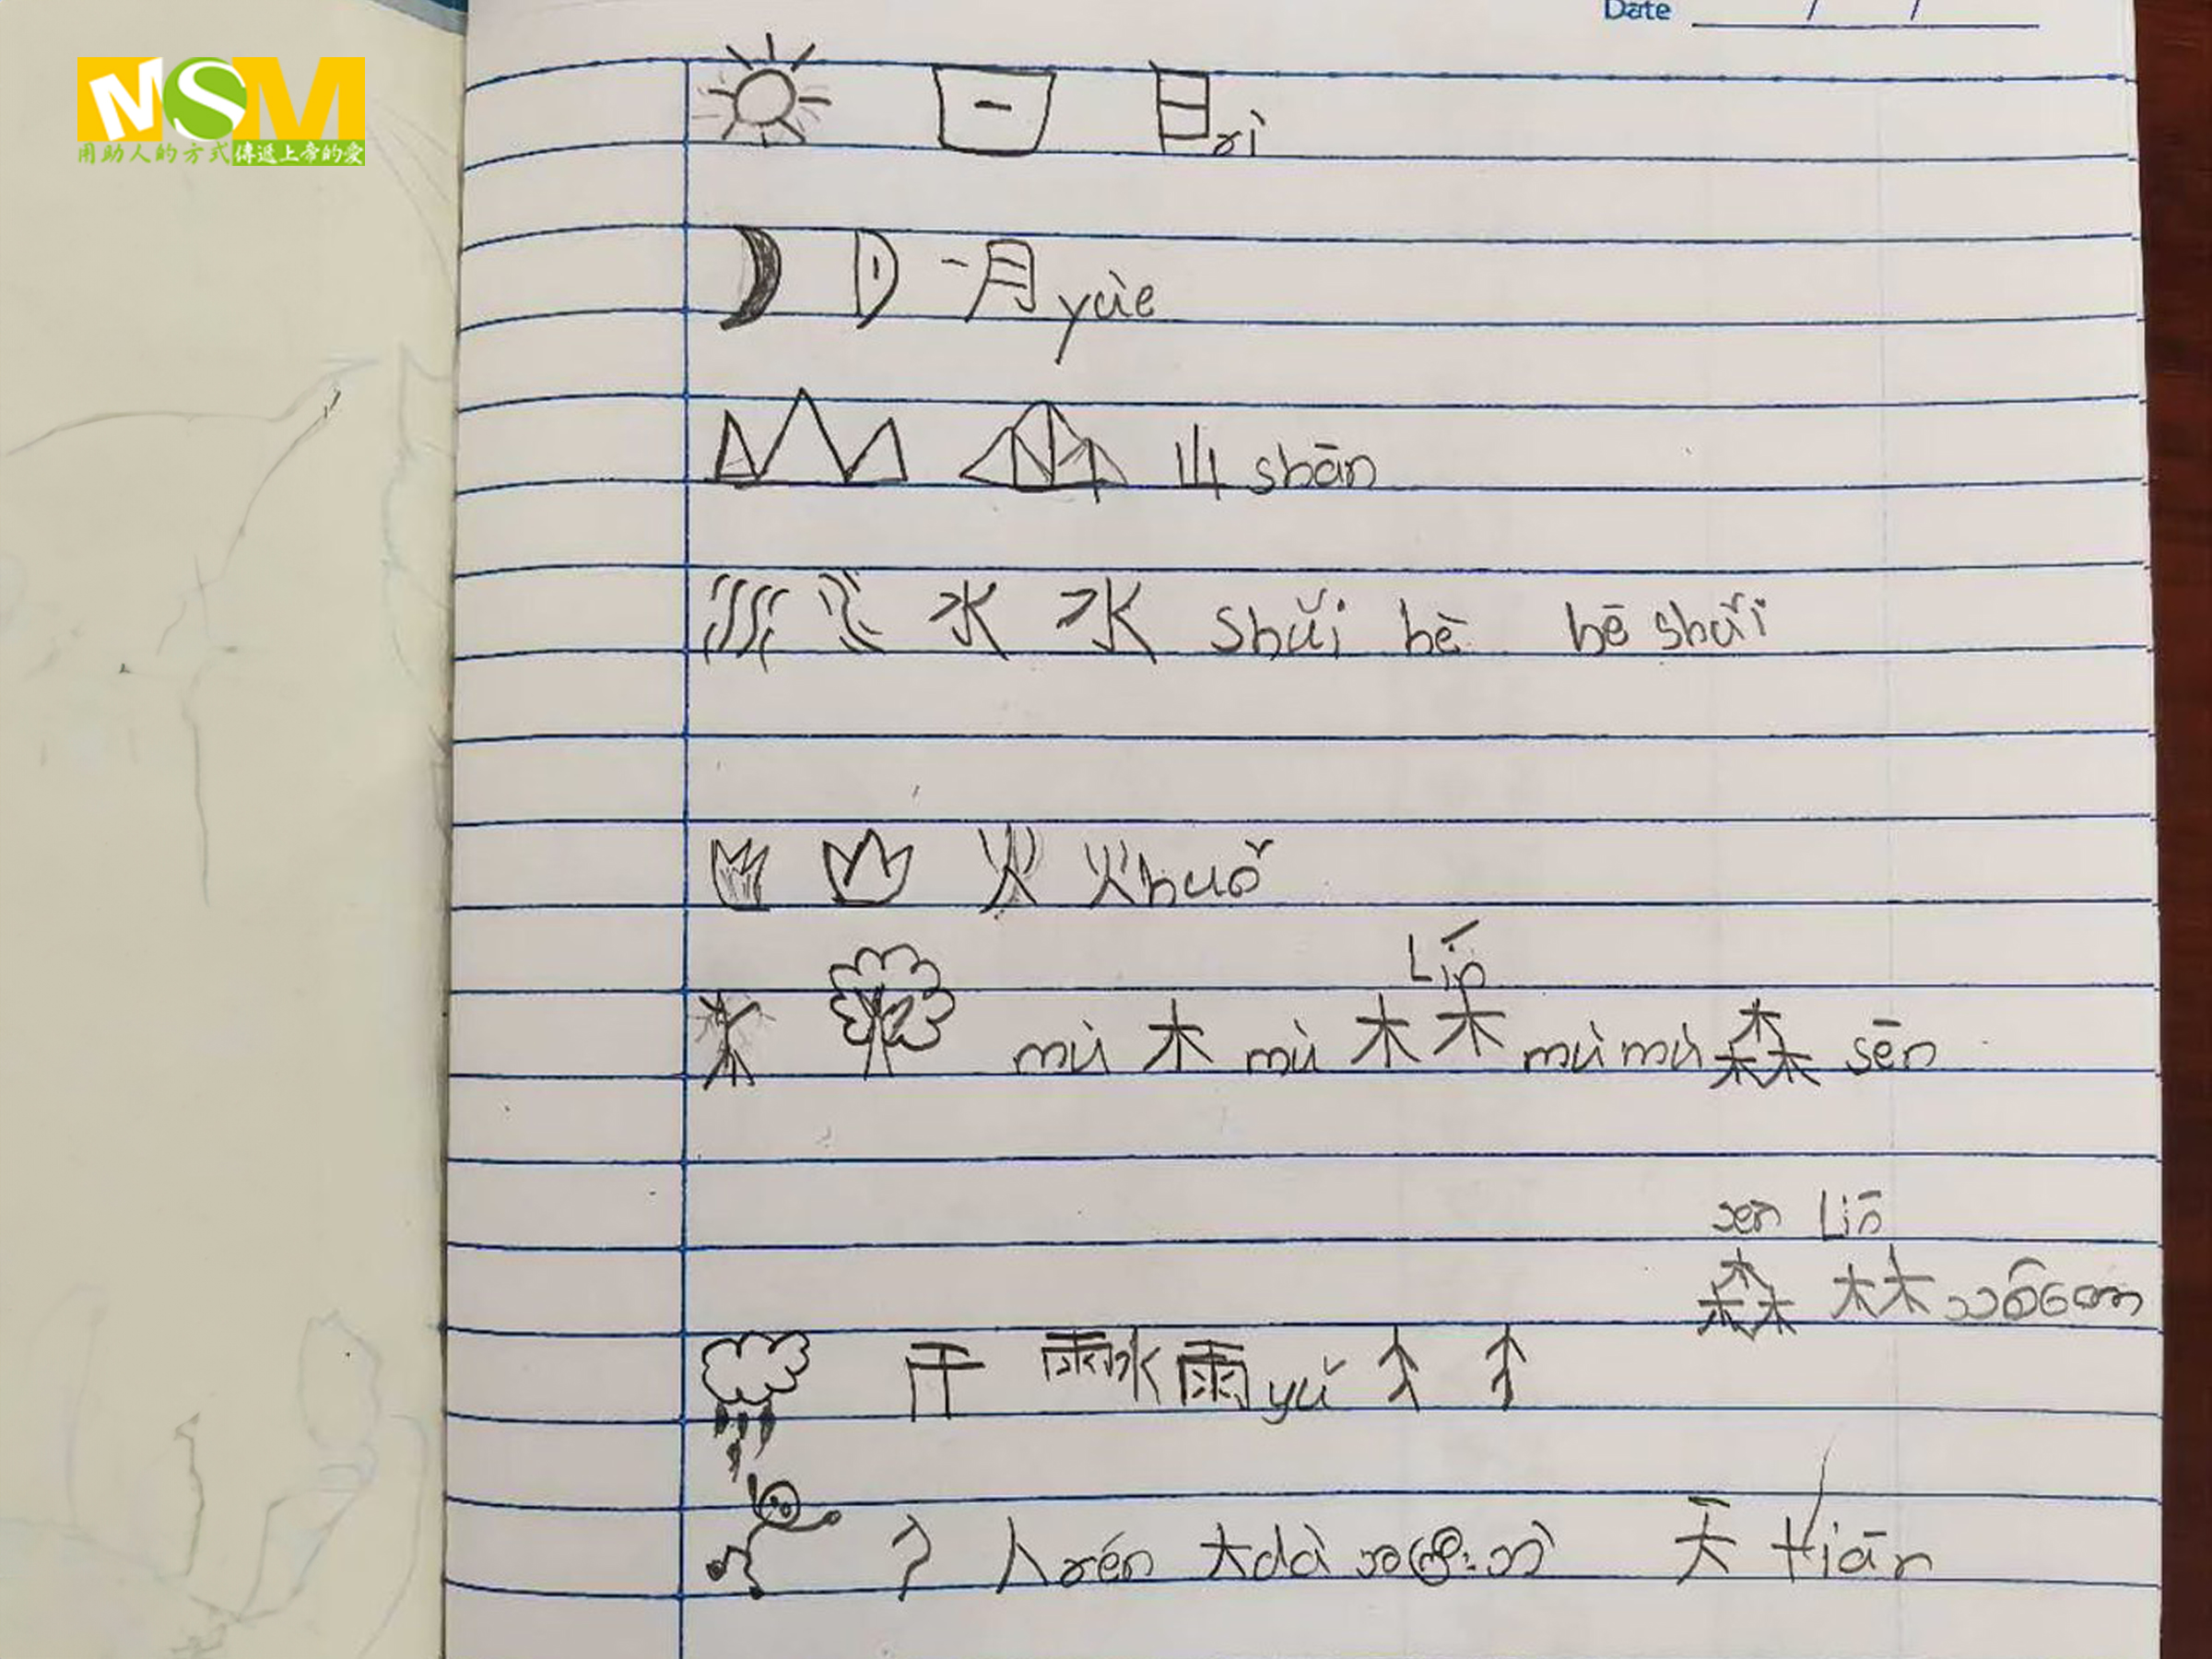 Date
MSM
用助人的方式傳遞上帝的愛
日 rì
月 yuè
山 shān
水 水 shuǐ hè hē shuǐ
火 火 huǒ
Lín
mù 木 mù 木木 mù mù 森 sēn
sen Lin
森 林
雨水 雨 yǔ
人 rén 大 dà 天 tiān